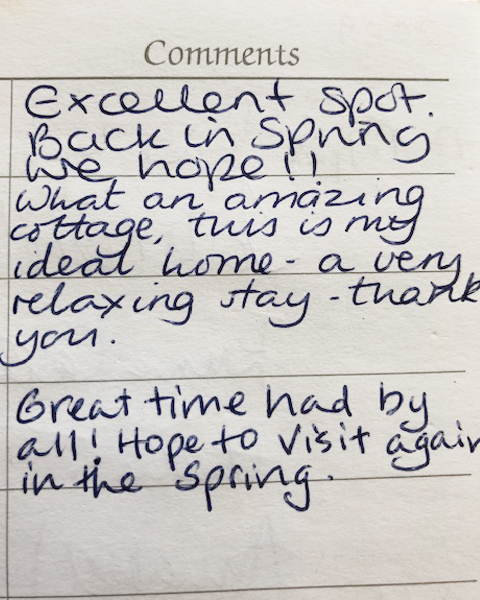 Comments
Excellent spot.
Back in Spring
we hope!!
What an amazing
cottage, this is my
ideal home - a very
relaxing stay - thank
you.
Great time had by
all! Hope to visit again
in the Spring.